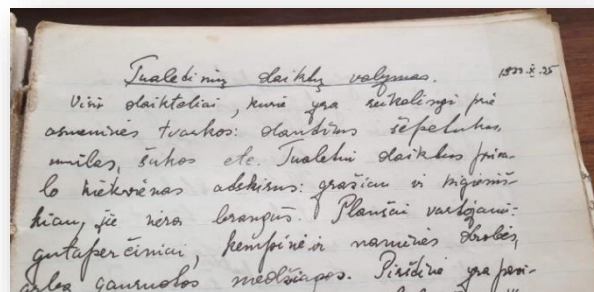 Tualetinių daiktų valymas. 1933.X.25
Visi daikteliai, kurie yra reikalingi prie
asmeninės tvarkos: dantims šepetukas,
muilas, šukos etc. Tualetin daiktus priva-
lo kiekvienas atskirus: gražiau ir higieniš-
kiau, jie nėra brangūs. Plaušai vartojami:
gutaperčiniai, kempinė ir naminės drobės,
arba gauruotos medžiagos. Pirštinė yra pasi-